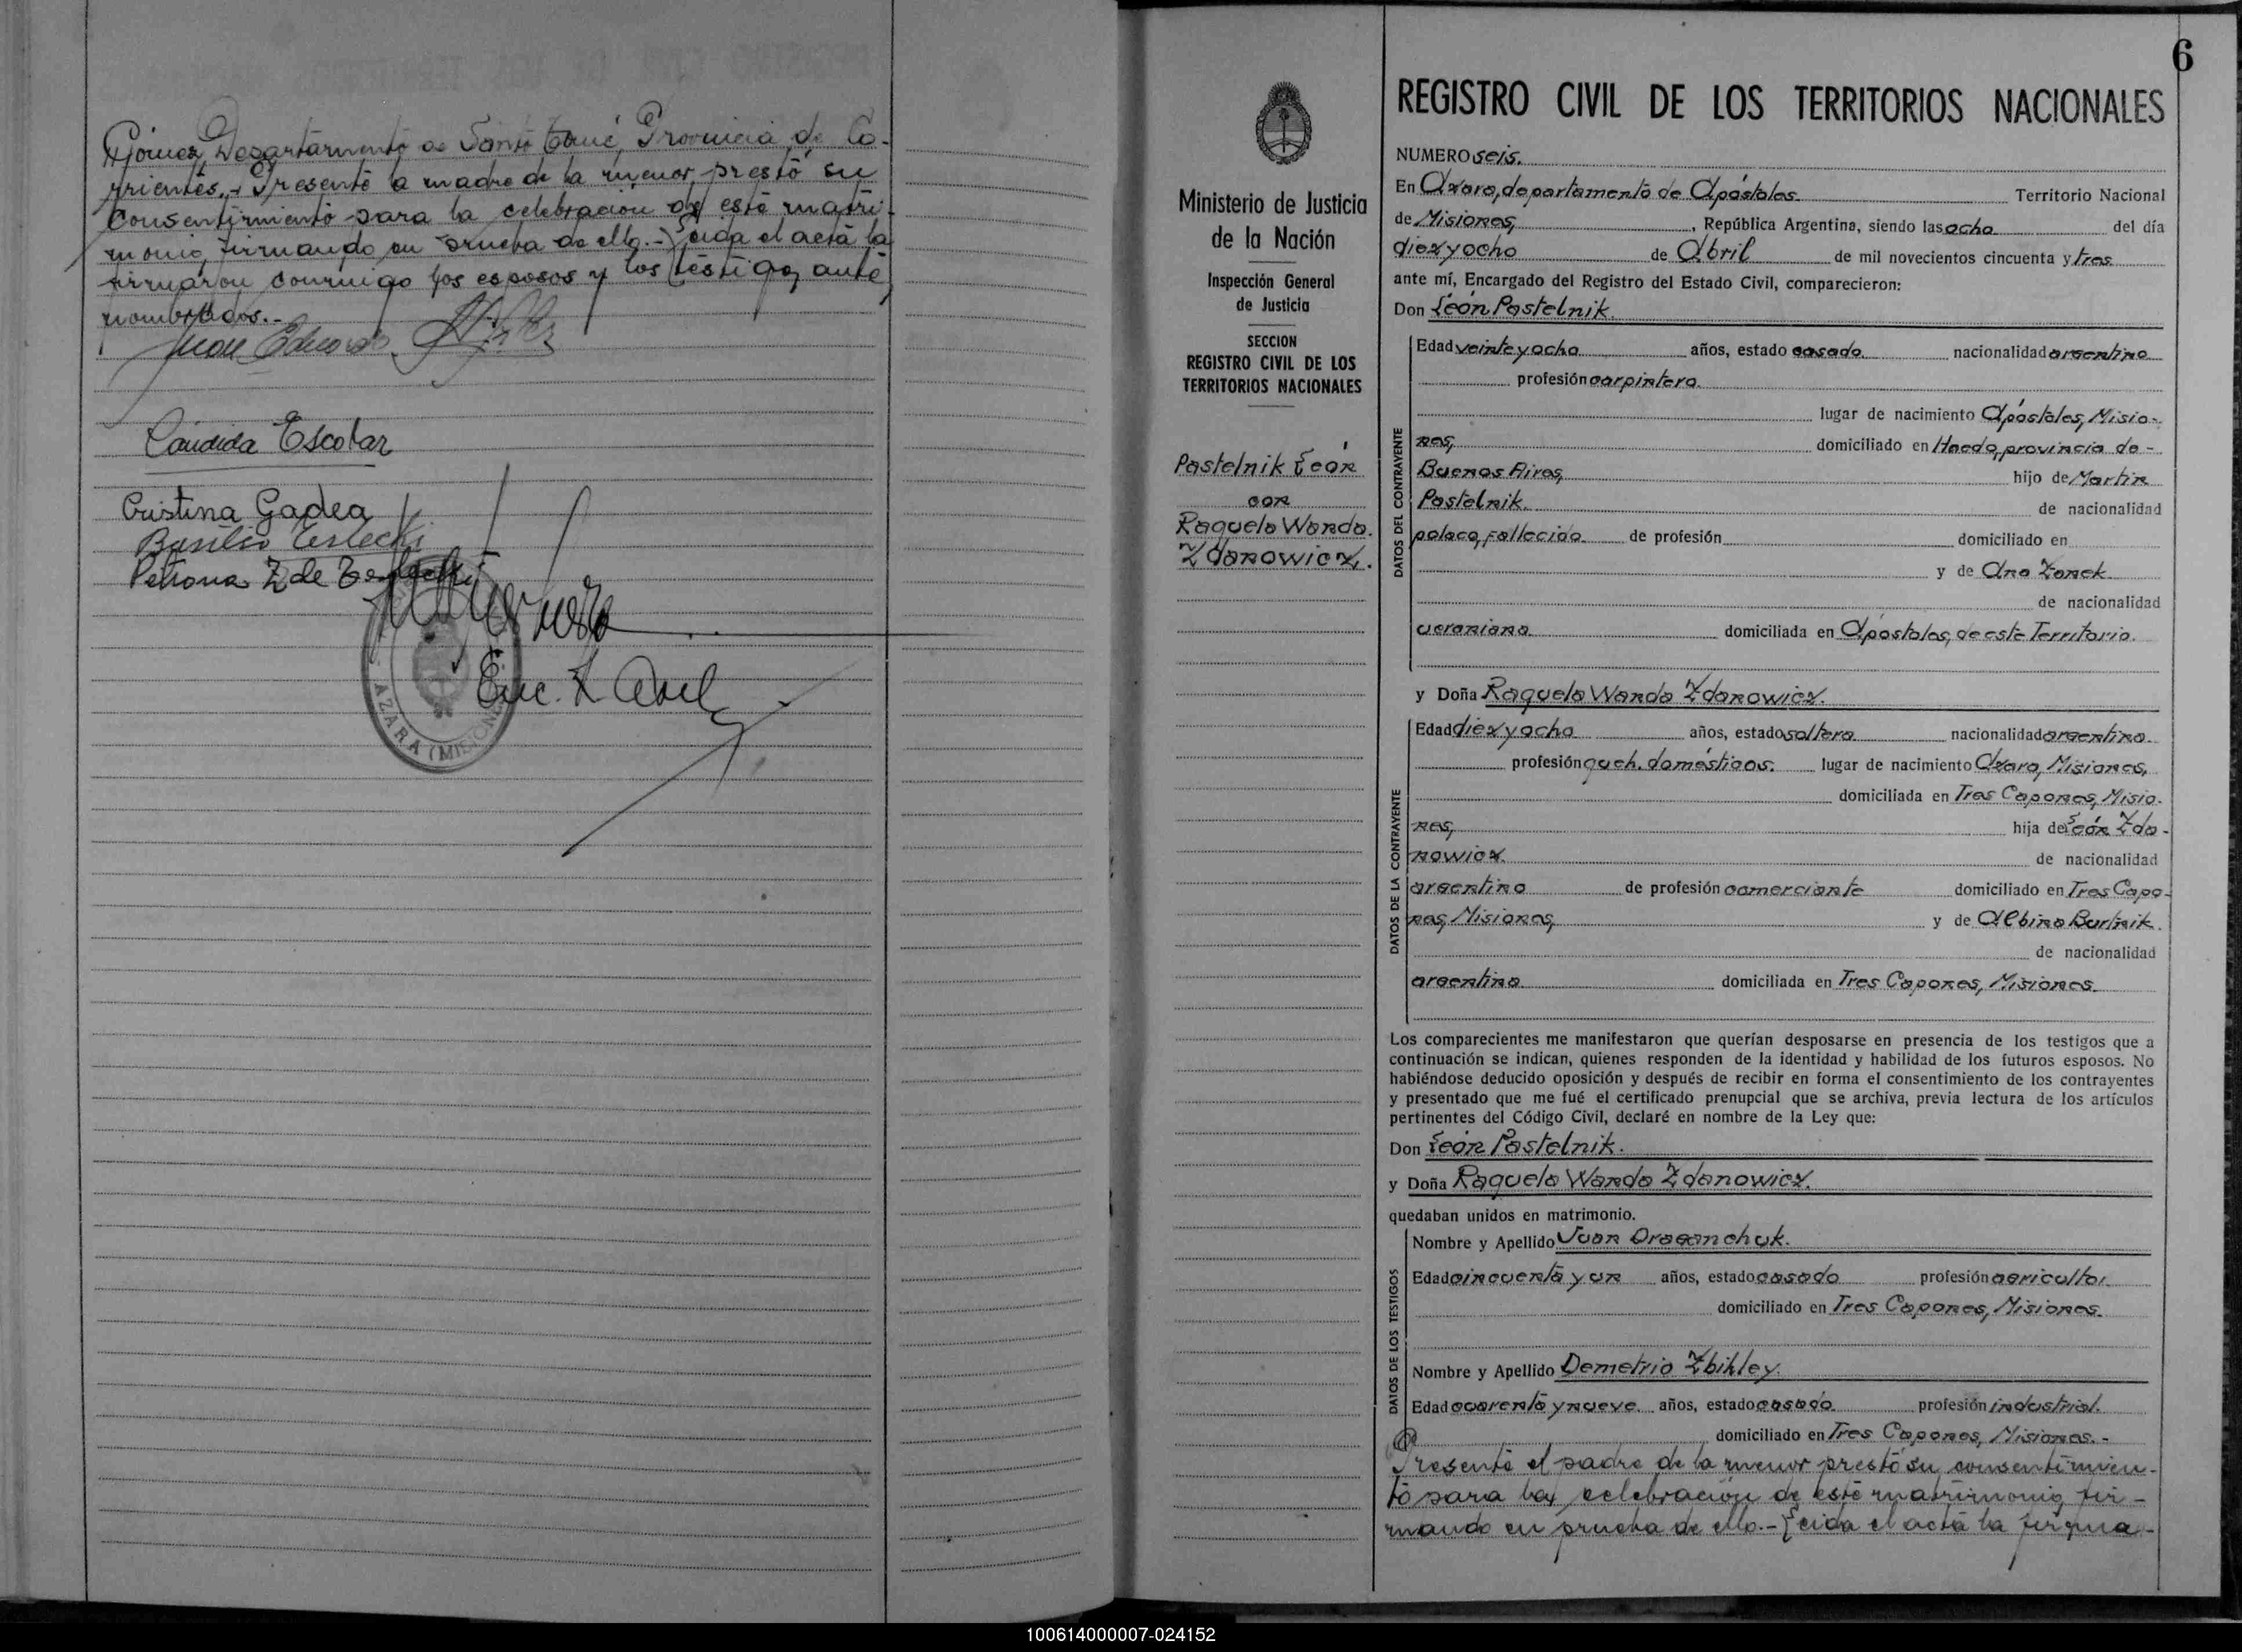 Gómez, Departamento de Santo Tomé, Provincia de Co-
rrientes.- Presente la madre de la menor prestó su
consentimiento para la celebración de este matri-
monio, firmando en prueba de ello.- Leida el acta la
firmaron conmigo los esposos y los testigos ante
nombrados.-
Juan Eduardo
Cándida Escobar
Cristina Gadea
Basilio
Petrona Z de
Enc.
AZARA (MISIONES)
6
REGISTRO CIVIL DE LOS TERRITORIOS NACIONALES
Ministerio de Justicia
de la Nación
Inspección General
de Justicia
SECCION
REGISTRO CIVIL DE LOS
TERRITORIOS NACIONALES
Pastelnik León
con
Raquela Wanda
Zdanowicz.
NUMERO seis.
En Azara, departamento de Apóstoles. Territorio Nacional
de Misiones, República Argentina, siendo las ocho del día
diez y ocho de Abril de mil novecientos cincuenta y tres
ante mí, Encargado del Registro del Estado Civil, comparecieron:
Don León Pastelnik.
DATOS DEL CONTRAYENTE
Edad veinte y ocho años, estado casado nacionalidad argentino
profesión carpintero.
lugar de nacimiento Apóstoles, Misio-
nes, domiciliado en Haedo, provincia de-
Buenos Aires, hijo de Martin
Pastelnik. de nacionalidad
polaco, fallecido. de profesión domiciliado en
y de Ana Zonek
de nacionalidad
ucraniana. domiciliada en Apóstoles, de este Territorio.
y Doña Raquela Wanda Zdanowicz.
DATOS DE LA CONTRAYENTE
Edad diez y ocho años, estado soltera nacionalidad argentina.
profesión queh. domésticos. lugar de nacimiento Azara, Misiones,
domiciliada en Tres Capones, Misio-
nes, hija de León Zda-
nowicz. de nacionalidad
argentino de profesión comerciante domiciliado en Tres Capo-
nes, Misiones, y de Albina Burtnik.
de nacionalidad
argentina. domiciliada en Tres Capones, Misiones.
Los comparecientes me manifestaron que querían desposarse en presencia de los testigos que a
continuación se indican, quienes responden de la identidad y habilidad de los futuros esposos. No
habiéndose deducido oposición y después de recibir en forma el consentimiento de los contrayentes
y presentado que me fué el certificado prenupcial que se archiva, previa lectura de los artículos
pertinentes del Código Civil, declaré en nombre de la Ley que:
Don León Pastelnik.
y Doña Raquela Wanda Zdanowicz.
quedaban unidos en matrimonio.
DATOS DE LOS TESTIGOS
Nombre y Apellido Juan Draganchuk.
Edad cincuenta y un años, estado casado profesión agricultor
domiciliado en Tres Capones, Misiones.
Nombre y Apellido Demetrio Zbihley.
Edad cuarenta y nueve. años, estado casado. profesión industrial.
domiciliado en Tres Capones, Misiones.-
Presente el padre de la menor prestó su consentimien-
to para la celebración de este matrimonio, fir-
mando en prueba de ello.- Leida el acta la firma-
100614000007-024152